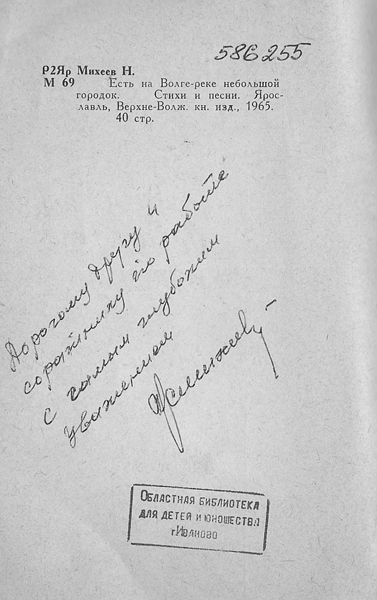 586255
Р2Яр Михеев Н.
М 69 Есть на Волге-реке небольшой
городок. Стихи и песни. Ярос-
лавль, Верхне-Волж. кн. изд., 1965.
40 стр.
Дорогому другу и
соратнику по работе
с самым глубоким
уважением
ОБЛАСТНАЯ БИБЛИОТЕКА
ДЛЯ ДЕТЕЙ И ЮНОШЕСТВА
г.Иваново